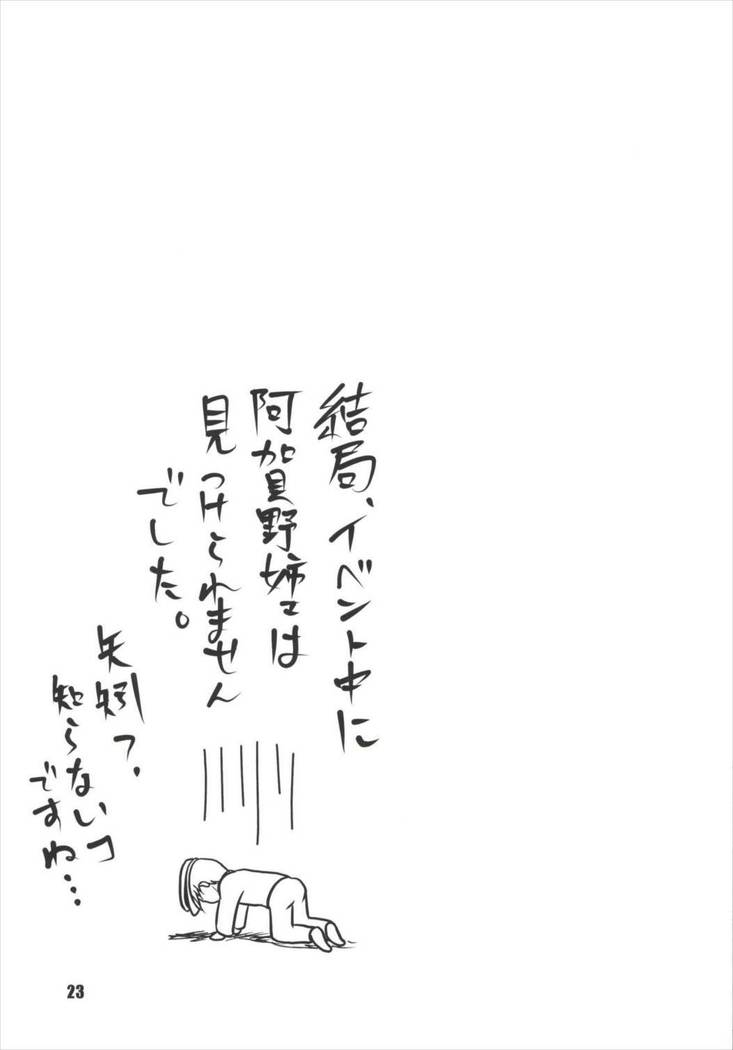 結局、イベント中に
阿賀野姉ェは
見つけられません
でした。
矢矧？
知らないコ
ですね…
23